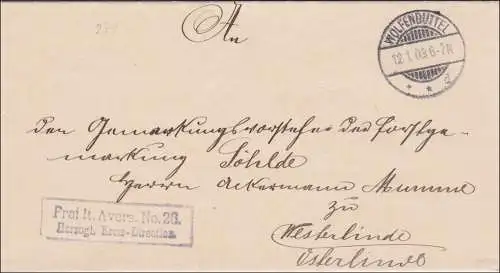 274
An
WOLFENBÜTTEL
12.1.03.6-7N.
den Gemarkungsvorsteher der Forstge-
markung Söhlde
Herrn Ackermann Mumme
zu
Westerlinde
Osterlinde
Frei lt. Avers. No. 26.
Herzogl. Kreis-Direction.